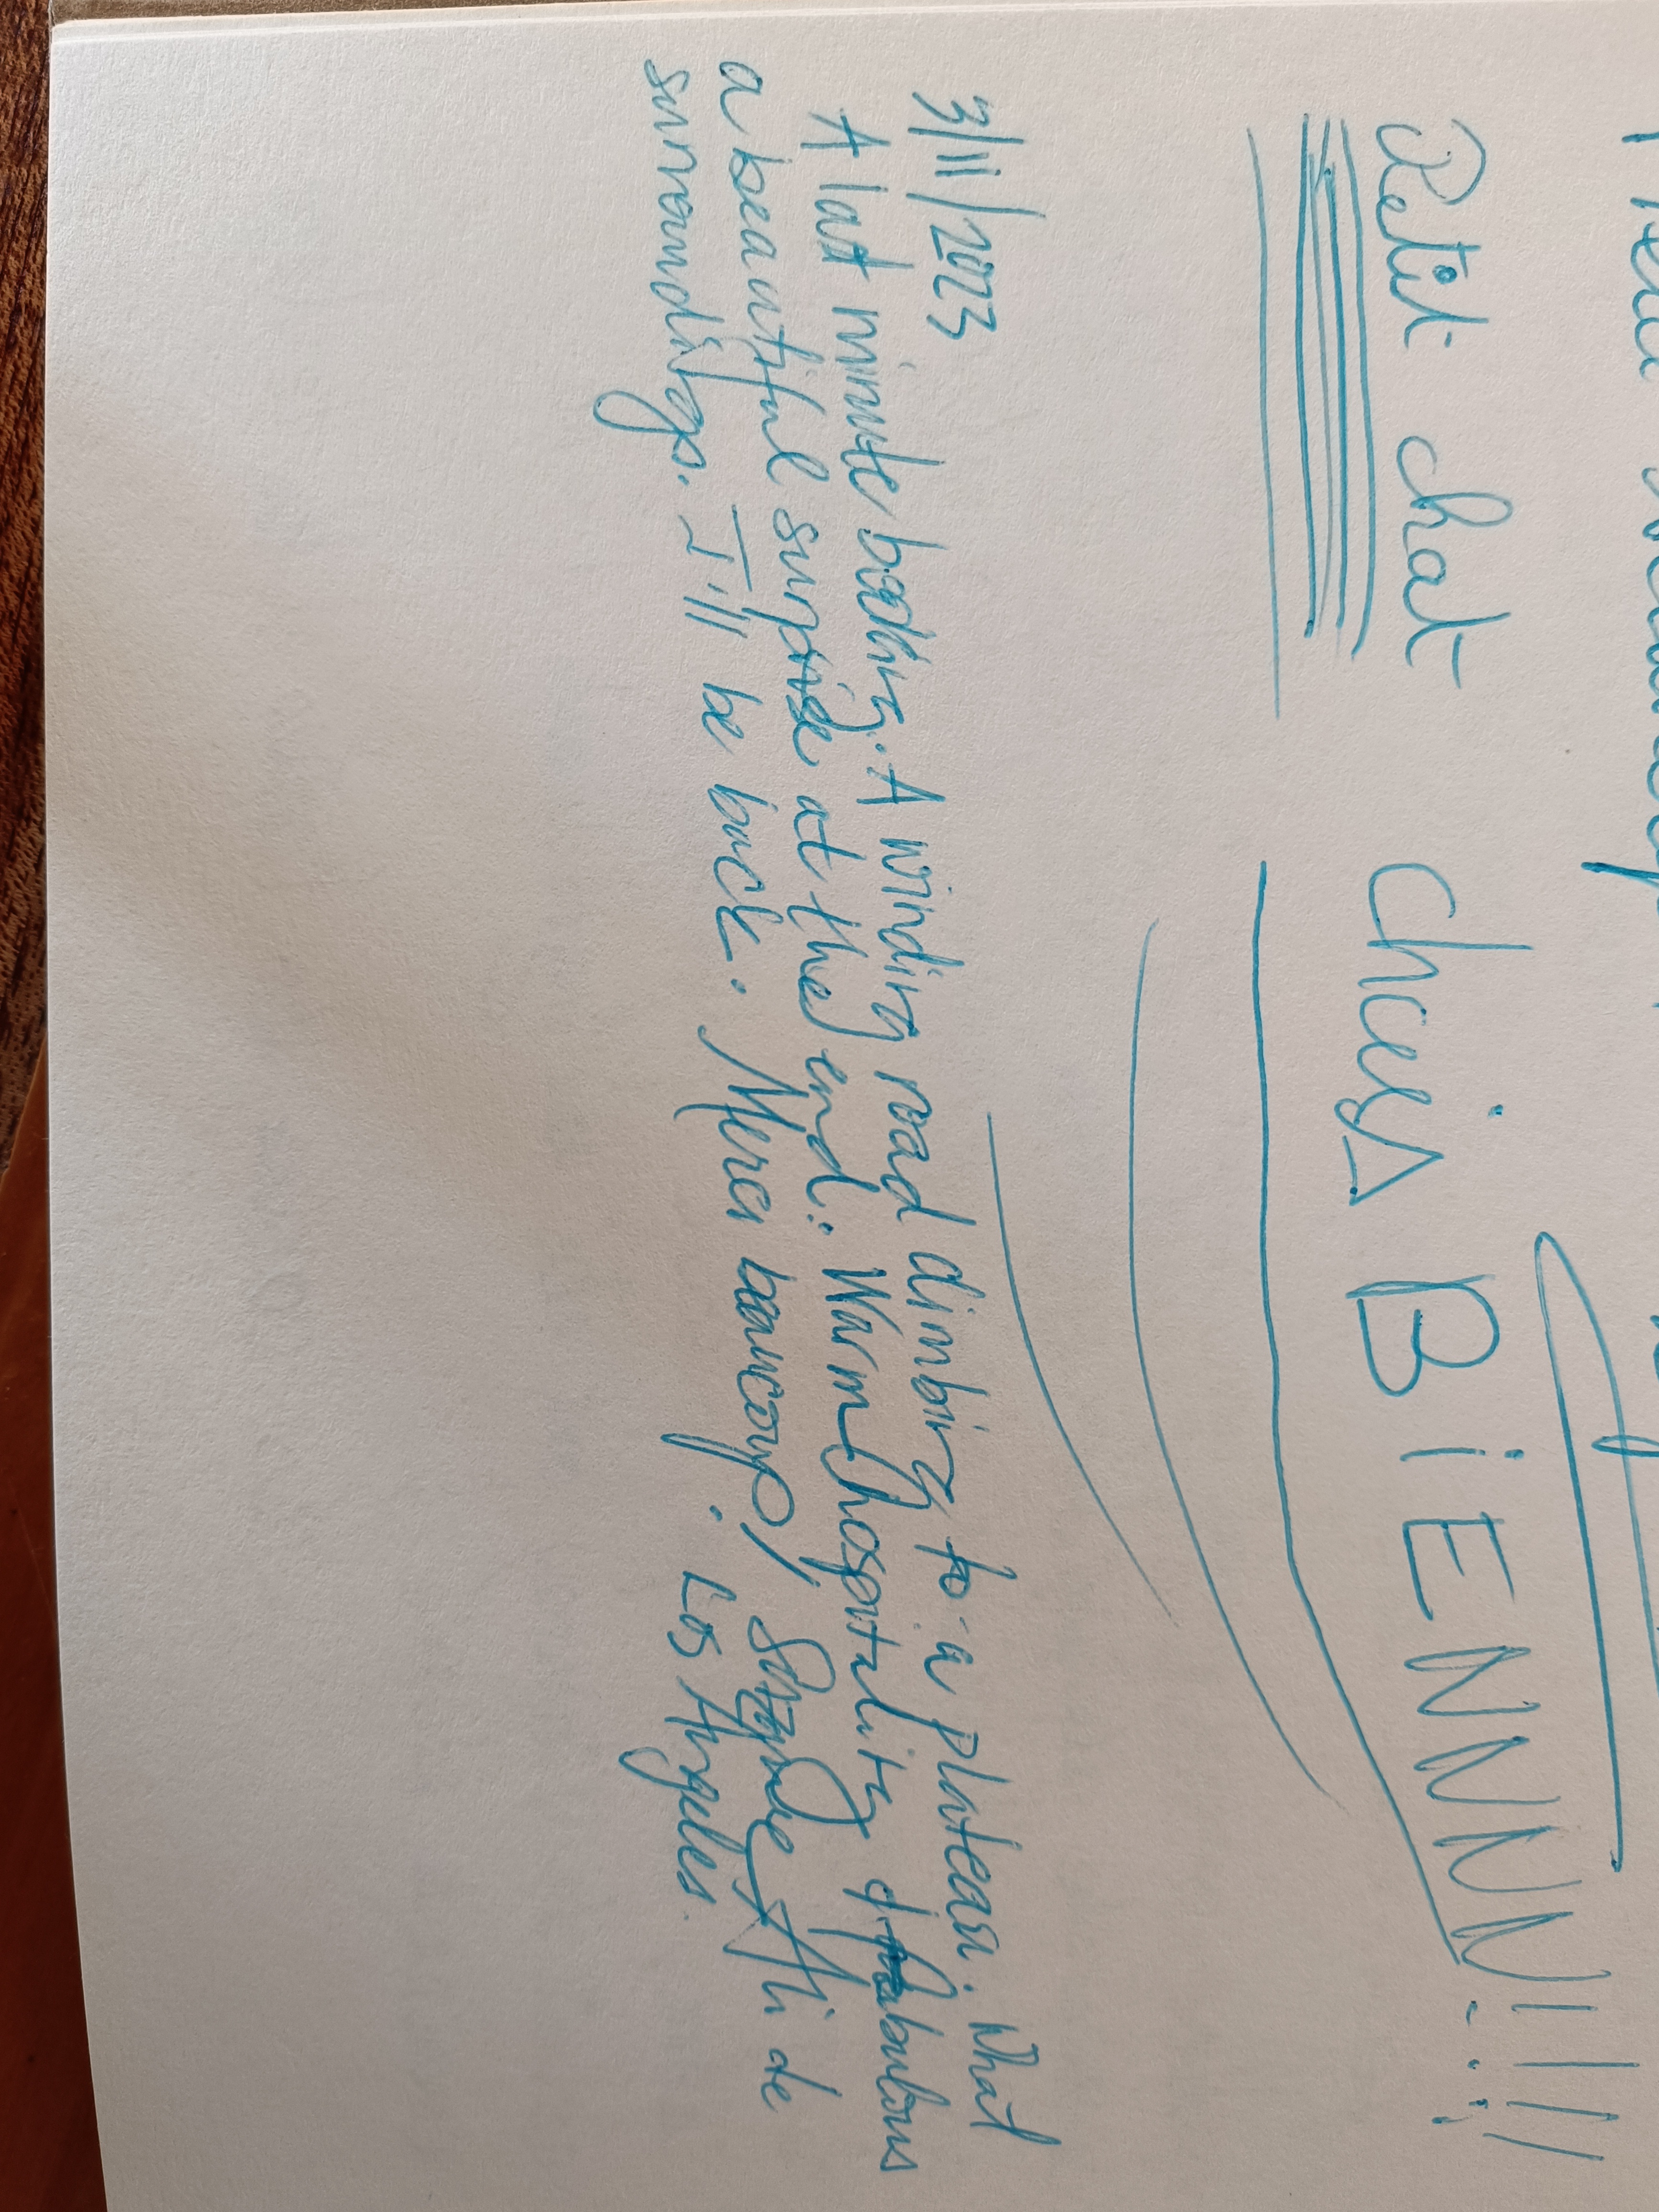 Petit chat choisi BiENNNN!!!!
3/11/2023
A last minute booking. A winding road climbing to a plateau. What
a beautiful surprise at the end: Warm hospitality & fabulous
surroundings. I'll be back. Merci beaucoup, Ali de
Los Angeles.